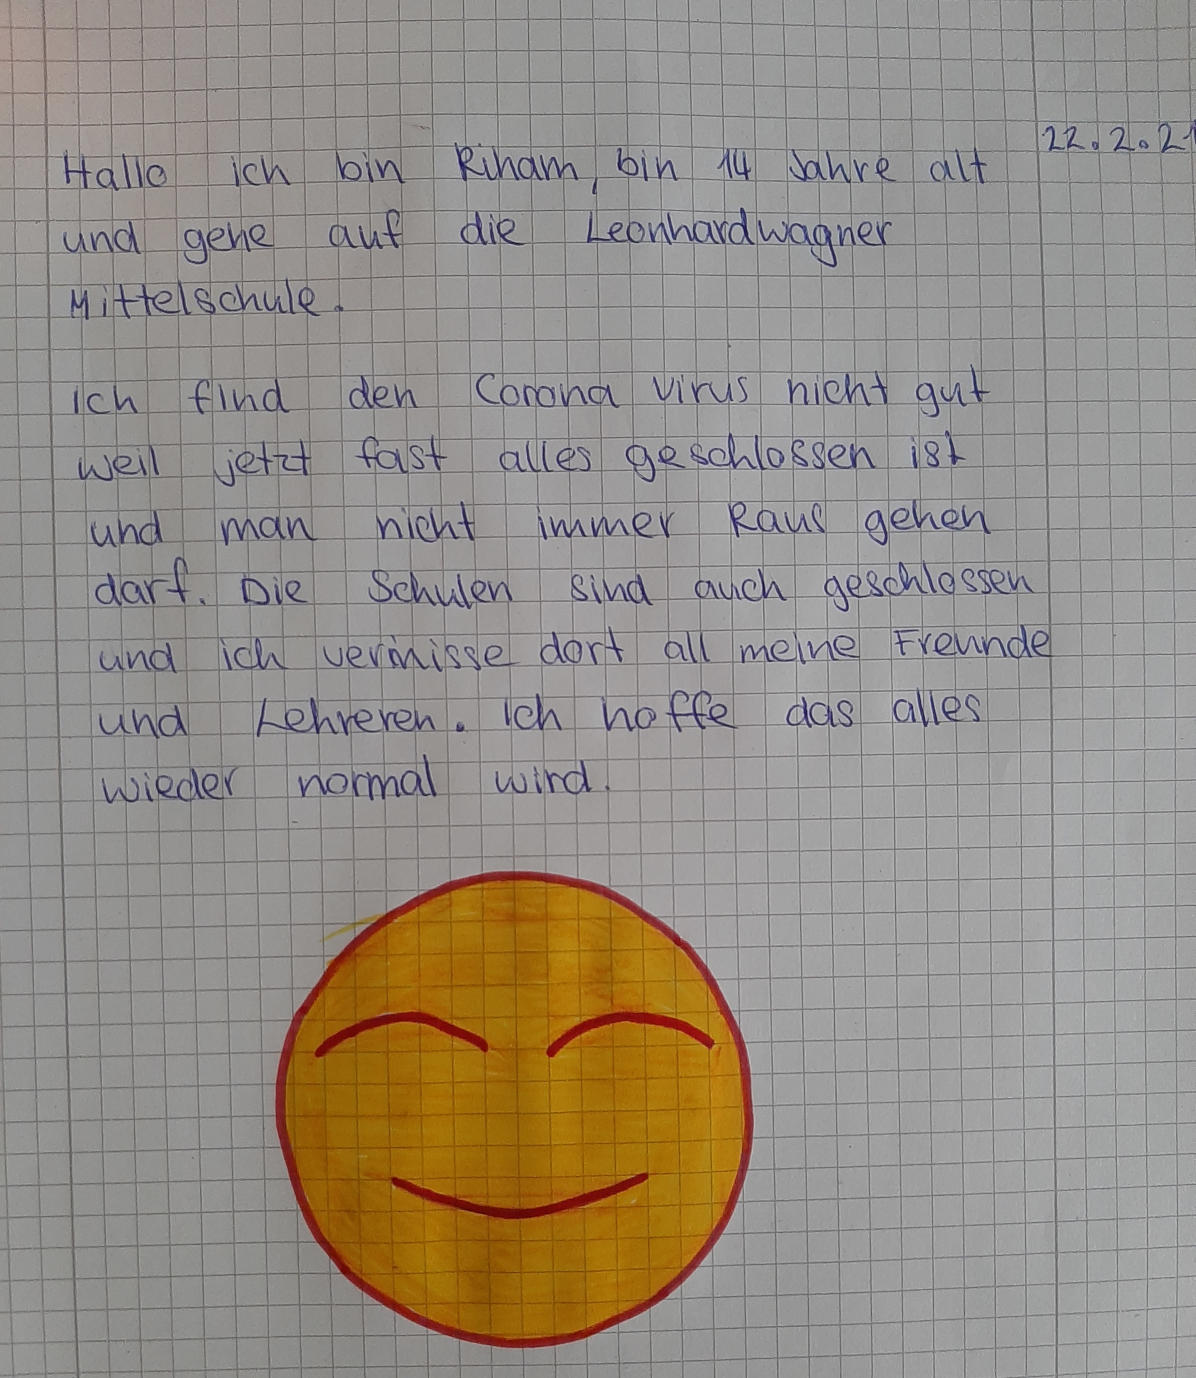 22.2.21
Hallo ich bin Riham, bin 14 Jahre alt
und gehe auf die Leonhardwagner
Mittelschule.
Ich find den Corona virus nicht gut
weil jetzt fast alles geschlossen ist
und man nicht immer Raus gehen
darf. Die Schulen sind auch geschlossen
und ich vermisse dort all meine Freunde
und Lehreren. Ich hoffe das alles
wieder normal wird.